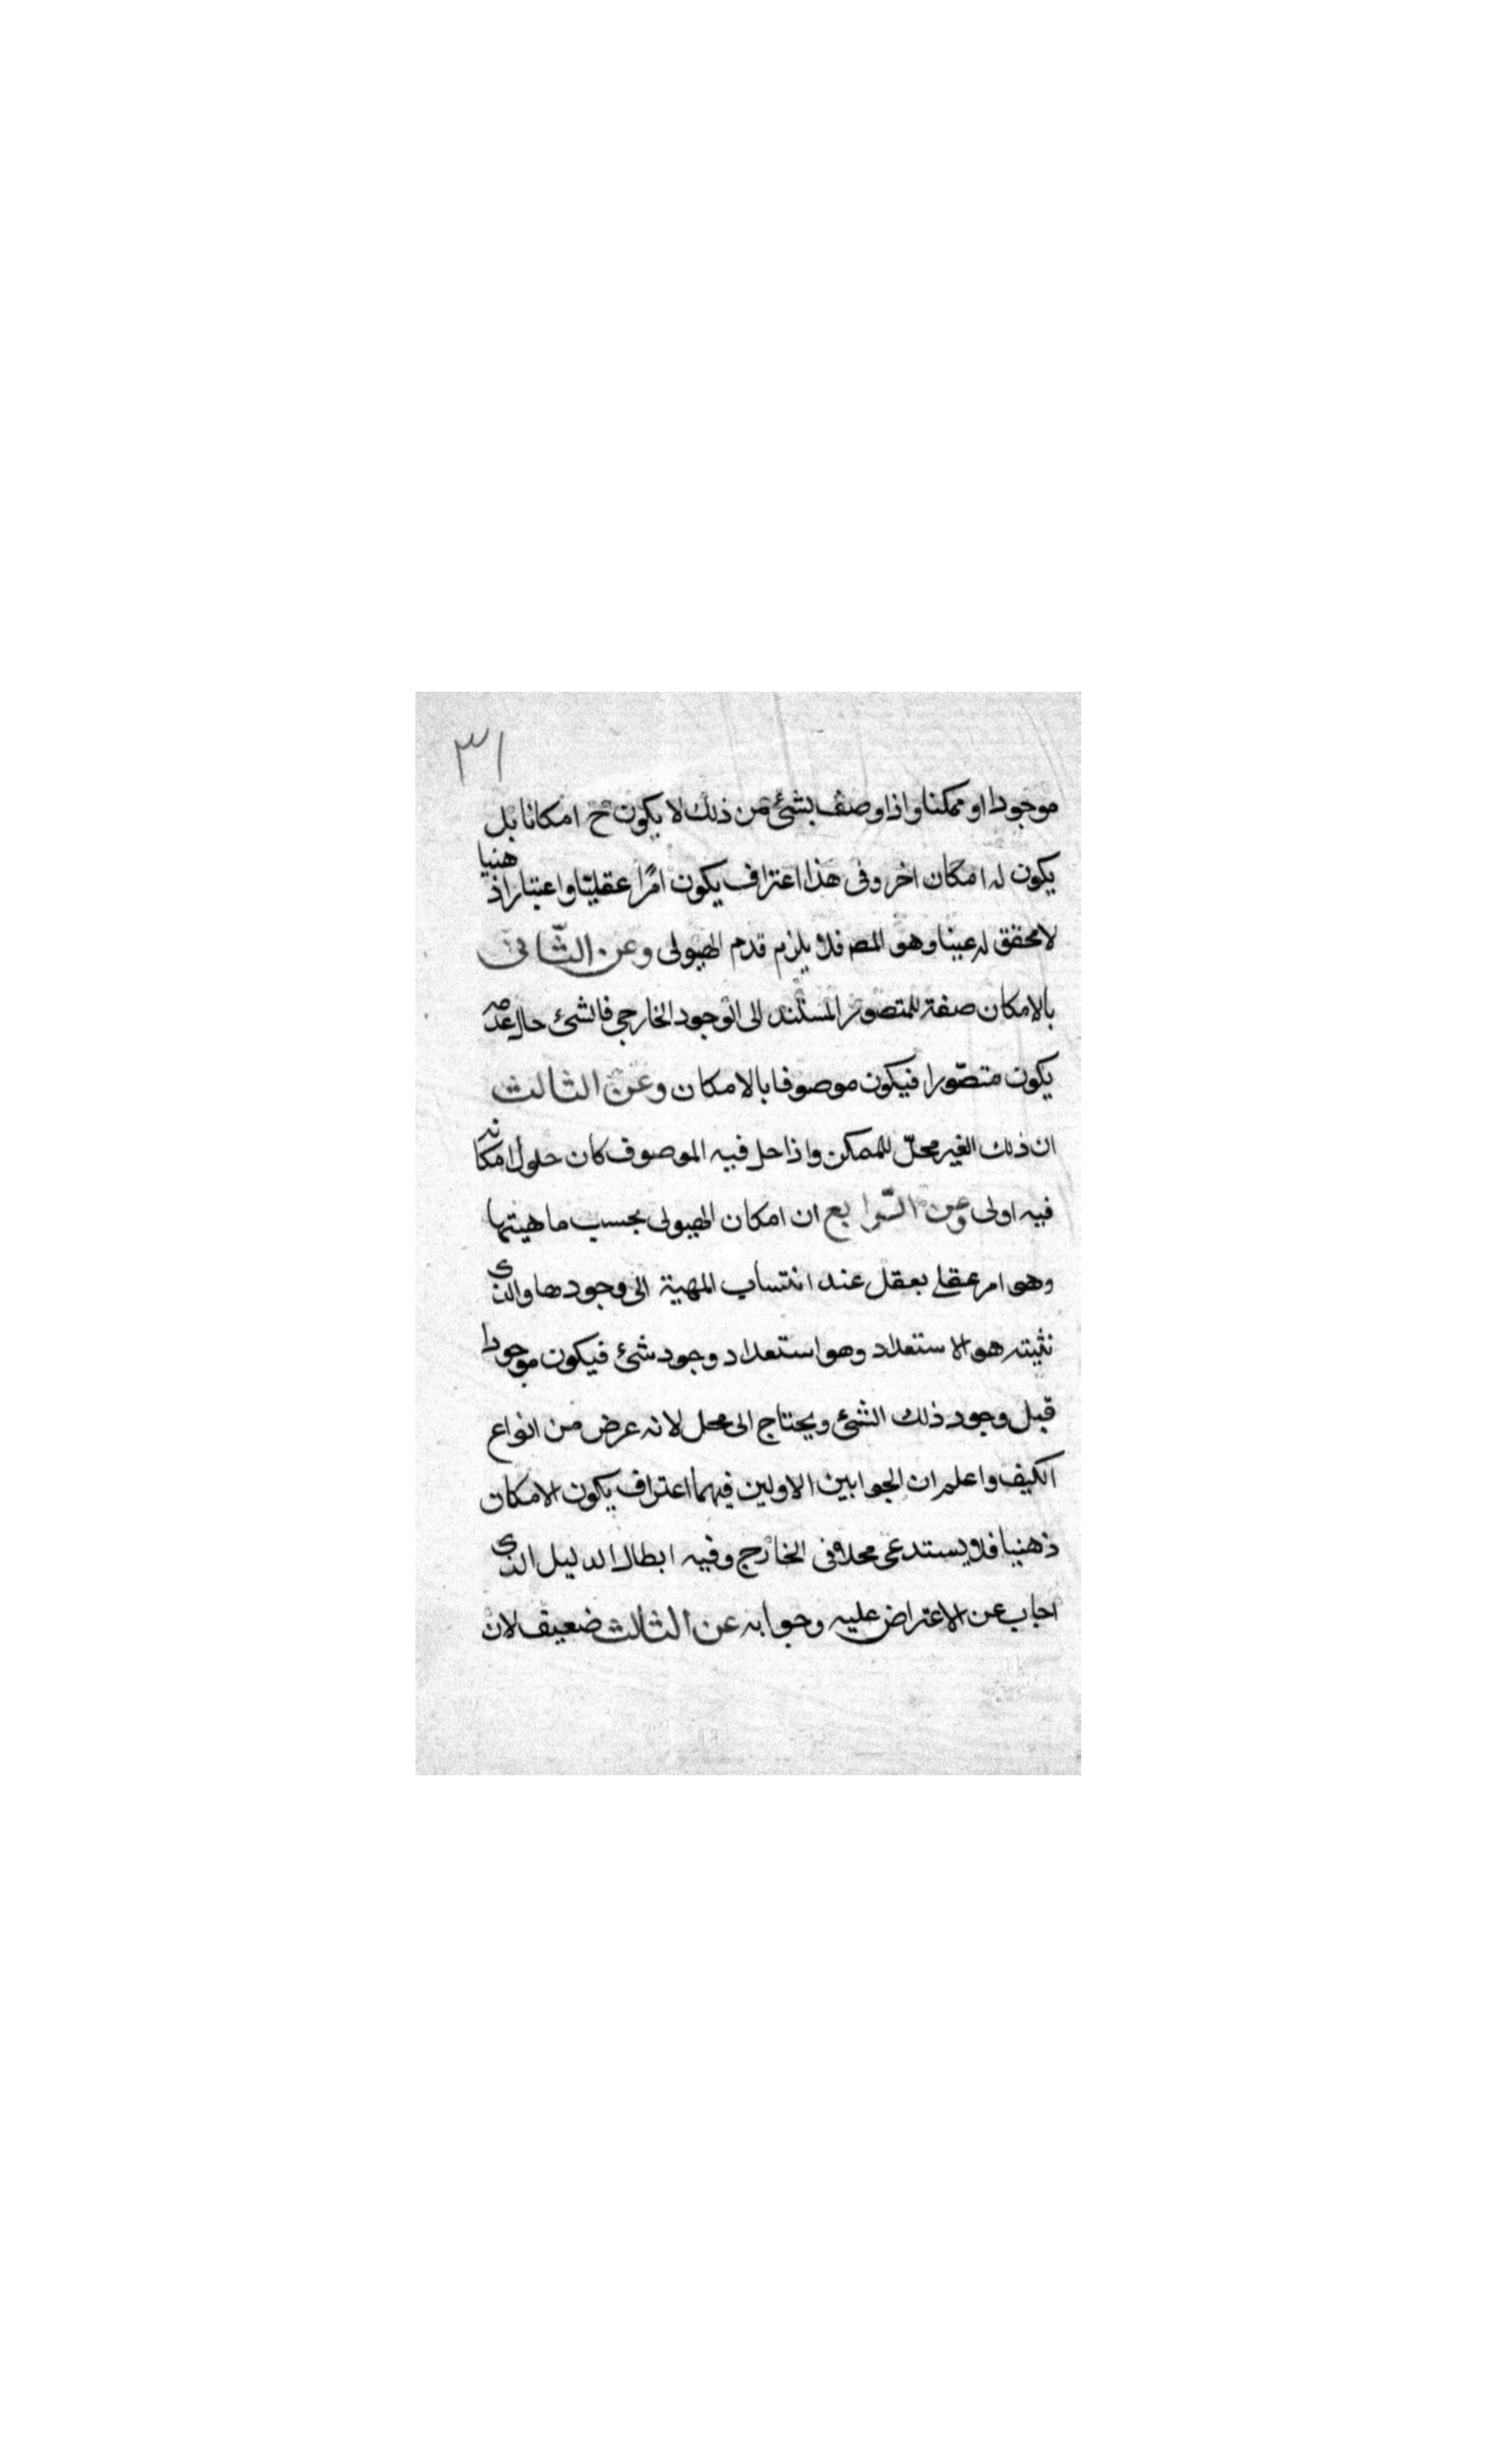 ٣١
موجودا او ممكنا واذا وصف بشئ من ذلك لا يكون ح امكانا بل
يكون له امكان اخر وفى هذا اعتراف يكون امرًا عقليّا واعتبارا ذهنيا
لا محقق له عينا وهو المصه فلا يلزم قدم الهيولى وعن الثّانى
بالامكان صفة للمتصور المستند الى الوجود الخارجى فالشئ حال عدمه
يكون متصّورا فيكون موصوفا بالامكان وعن الثالث
ان ذلك الغير محلّ للممكن واذا حل فيه الموصوف كان حلول امكانه
فيه اولى وعن الرّابع ان امكان الهيولى بحسب ماهيتها
وهو امر عقلى بعقل عند انتساب المهية الى وجودها والذى
نثبته هو الاستعداد وهو استعداد وجود شئ فيكون موجودا
قبل وجود ذلك الشئ ويحتاج الى محل لانه عرض من انواع
الكيف واعلم ان الجوابين الاولين فيهما اعتراف يكون الامكان
ذهنيا فلا يستدعى محلا فى الخارج وفيه ابطال الدليل الذى
اجاب عن الاعتراض عليه وجوابه عن الثالث ضعيف لان